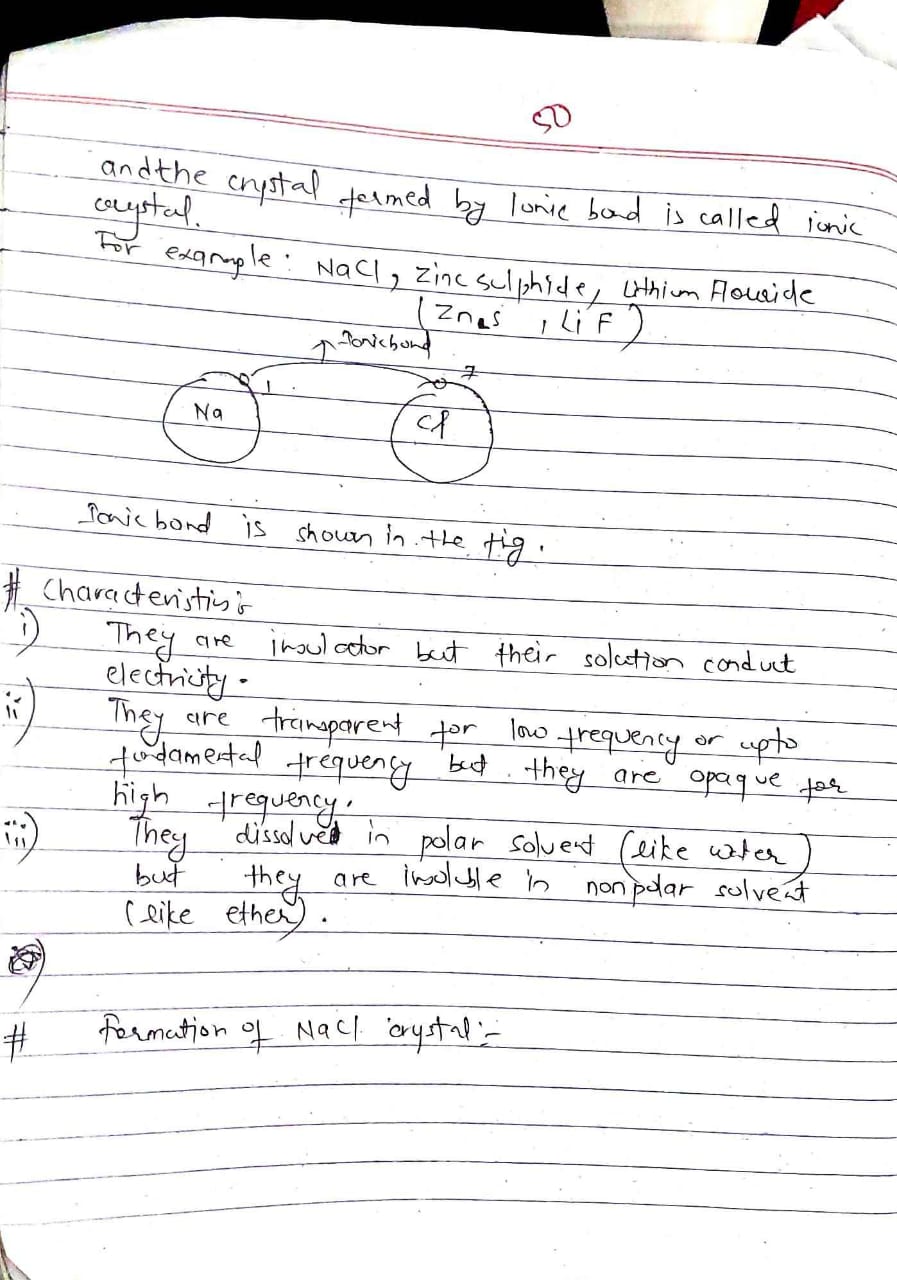 50
and the crystal formed by Ionic bond is called ionic
crystal.
For example: NaCl, Zinc sulphide, Lithium Flouride
(ZnS , LiF)
Ionic bond
1
7
Na
Cl
Ionic bond is shown in the fig.
# Characteristics
i) They are insulator but their solution conduct
electricity.
ii) They are transparent for low frequency or upto
fundamental frequency but they are opaque for
high frequency.
iii) They dissolved in polar solvent (like water)
but they are insoluble in nonpolar solvent
(like ether).
# Formation of NaCl crystal:-